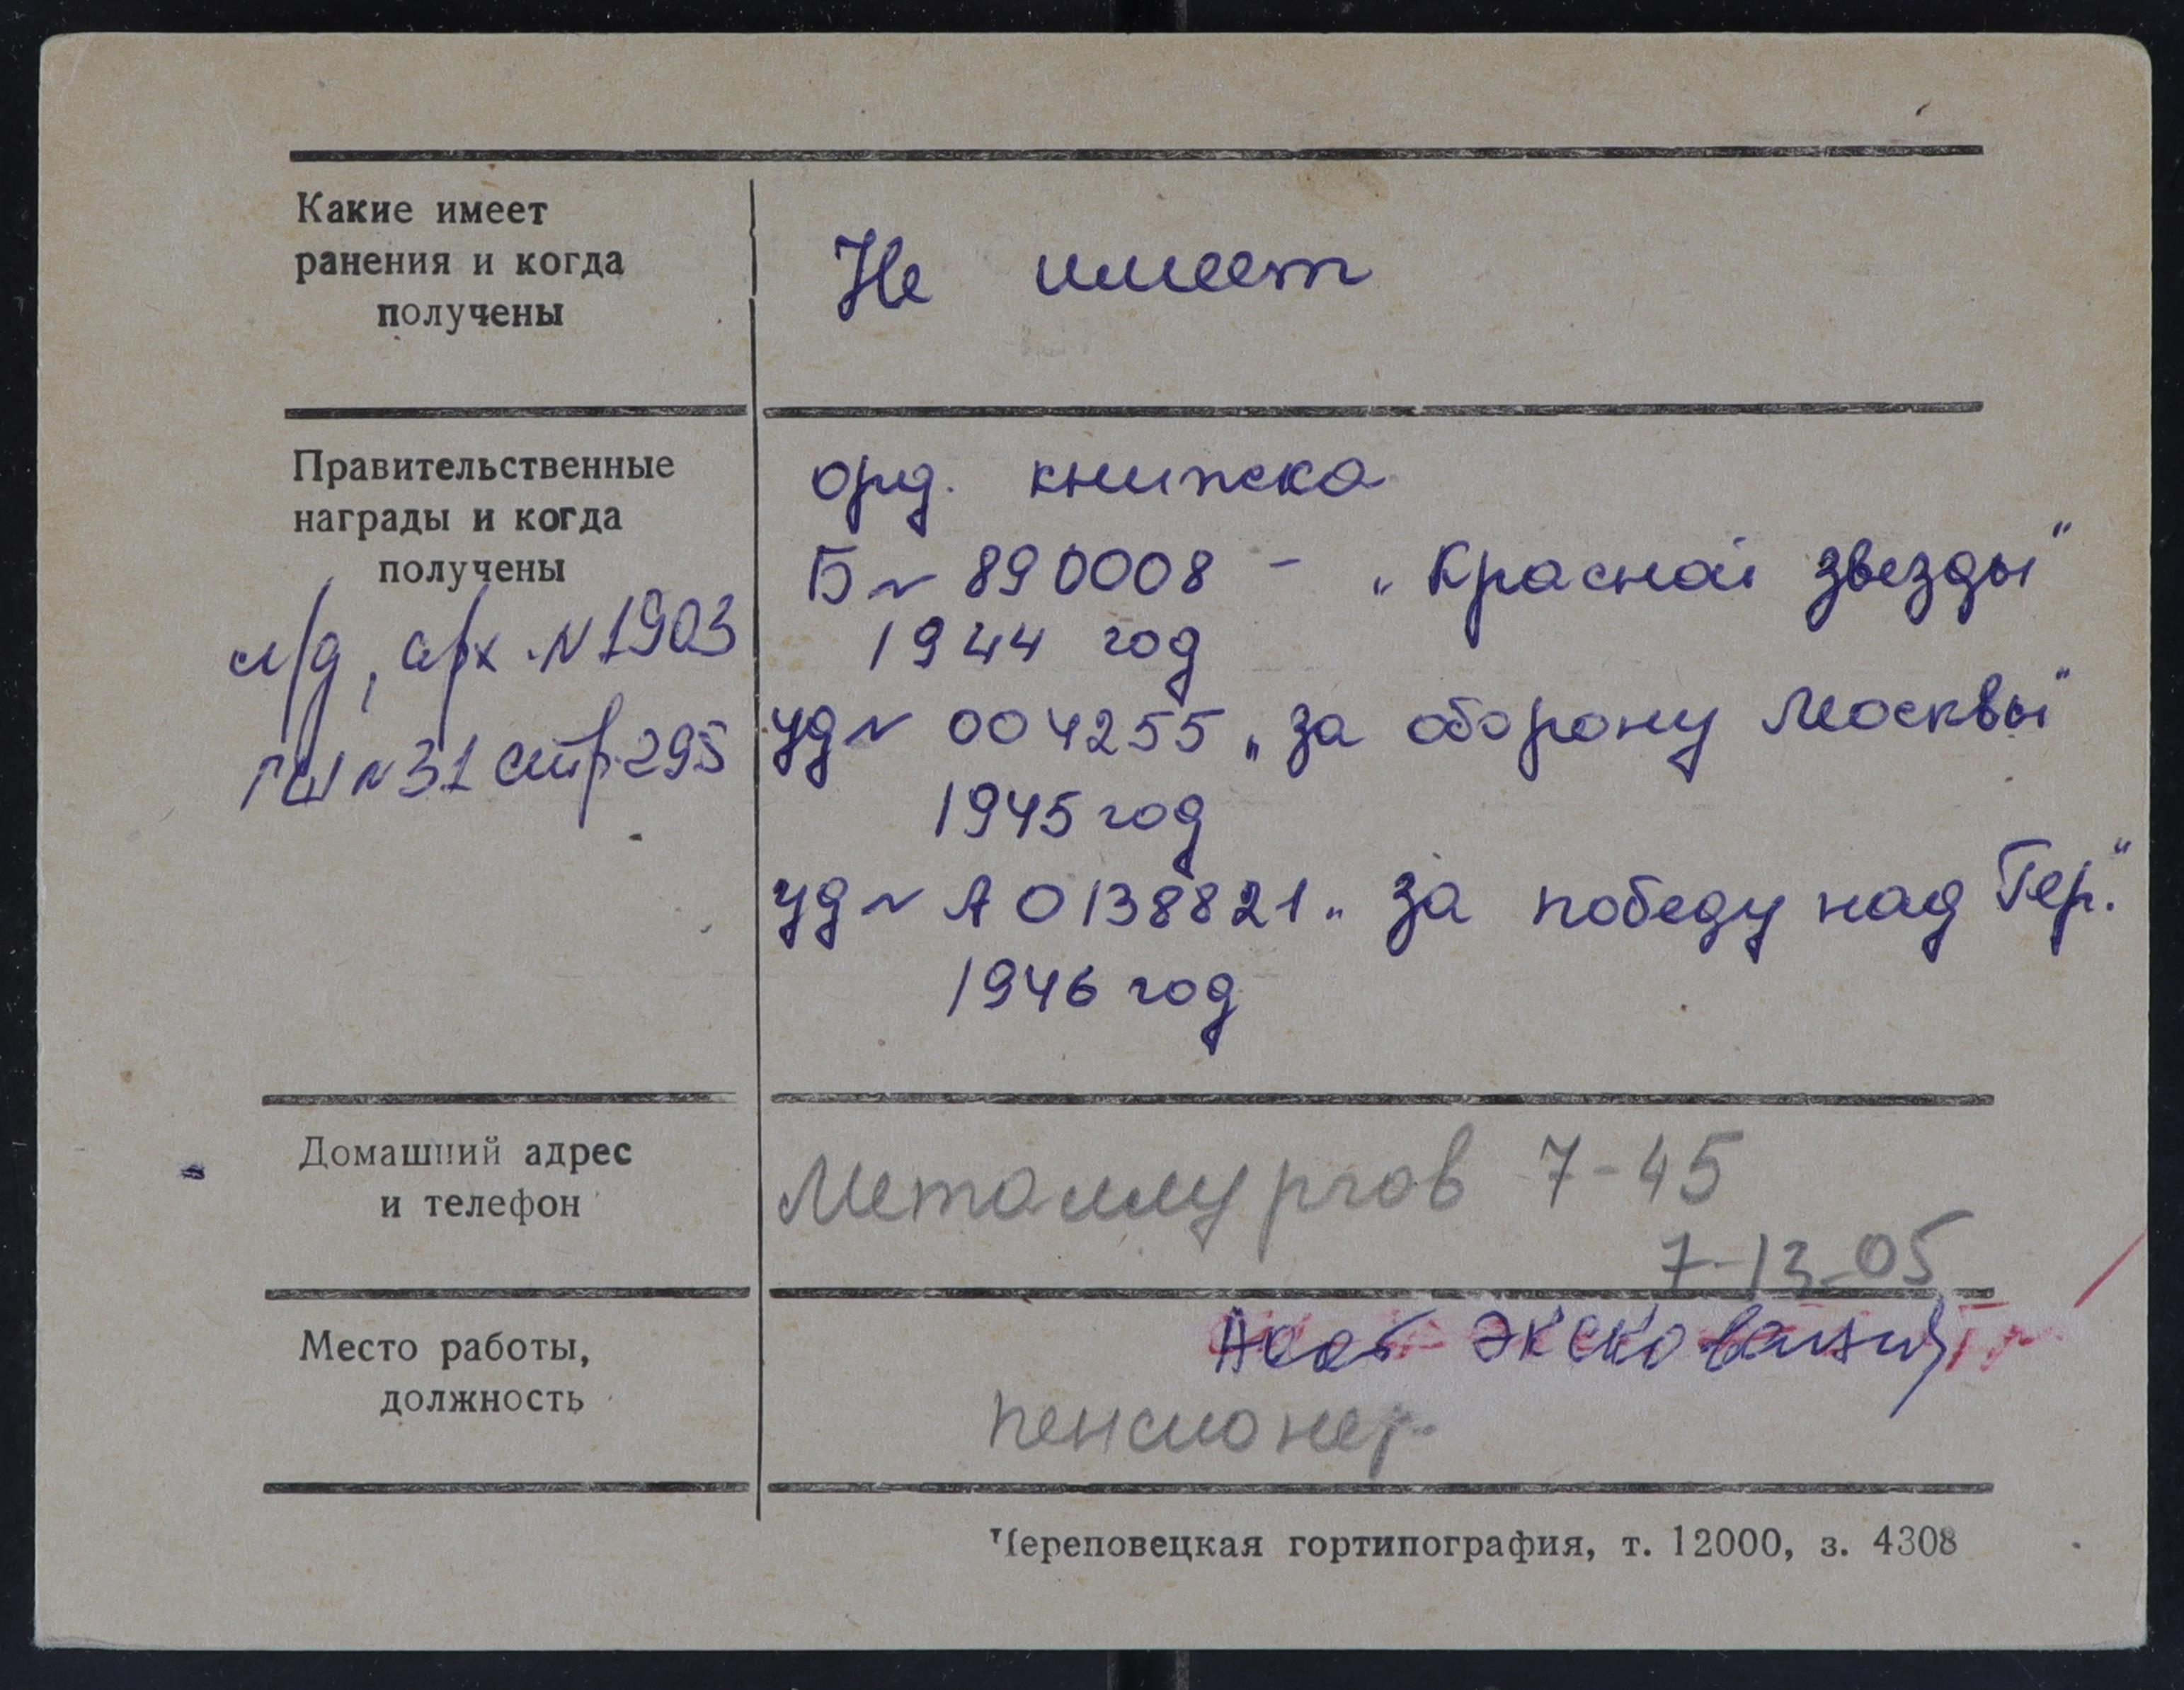 Какие имеет
ранения и когда
получены
Не имеет
Правительственные
награды и когда
получены
л/д, арх. N 1903
ГШ N 31 стр. 295
орд. книжка
Б N 890008 - „Красной звезды"
1944 год
уд N 004255 „за оборону Москвы"
1945 год
уд N А 0138821 „за победу над Гер."
1946 год
Домашний адрес
и телефон
Металлургов 7-45
7-13-05
Место работы,
должность
пенсионер
Череповецкая гортипография, т. 12000, з. 4308